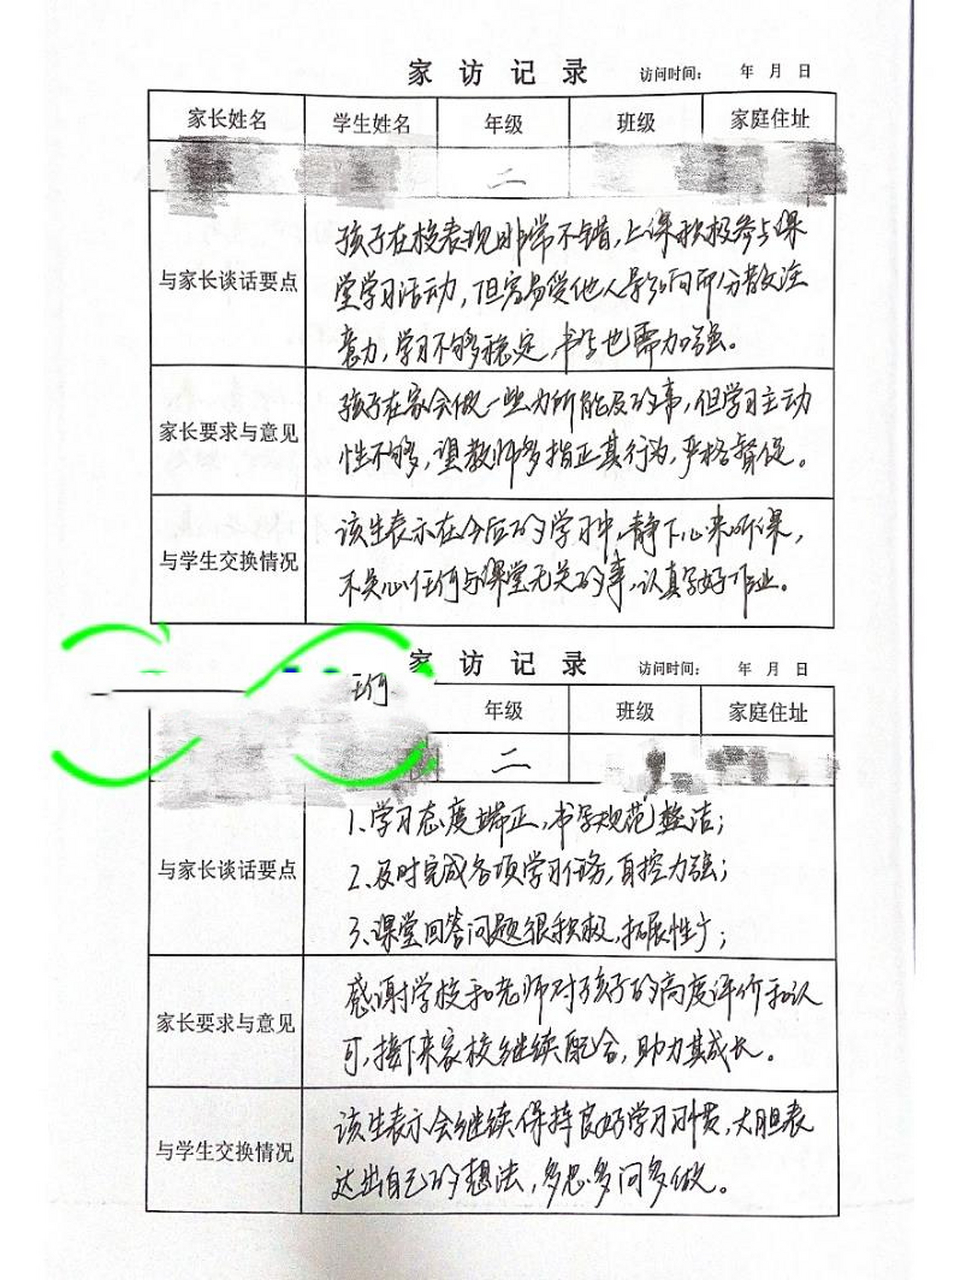 家访记录 访问时间: 年 月 日
家长姓名 学生姓名 年级 班级 家庭住址
二
与家长谈话要点
孩子在校表现非常不错,上课积极参与课
堂学习活动,但容易受他人影响而分散注
意力,学习不够稳定,书写也需加强。
家长要求与意见
孩子在家会做一些力所能及的事,但学习主动
性不够,望教师多指正其行为,严格督促。
与学生交换情况
该生表示在今后的学习中,静下心来听课,
不关心任何与课堂无关的事,认真写好作业。
家访记录 访问时间: 年 月 日
年级 班级 家庭住址
二
与家长谈话要点
1、学习态度端正,书写规范整洁;
2、及时完成各项学习任务,自控力强;
3、课堂回答问题很积极,拓展性广;
家长要求与意见
感谢学校和老师对孩子的高度评价和认
可,接下来家校继续配合,助力其成长。
与学生交换情况
该生表示会继续保持良好学习习惯,大胆表
达出自己的想法,多思多问多做。